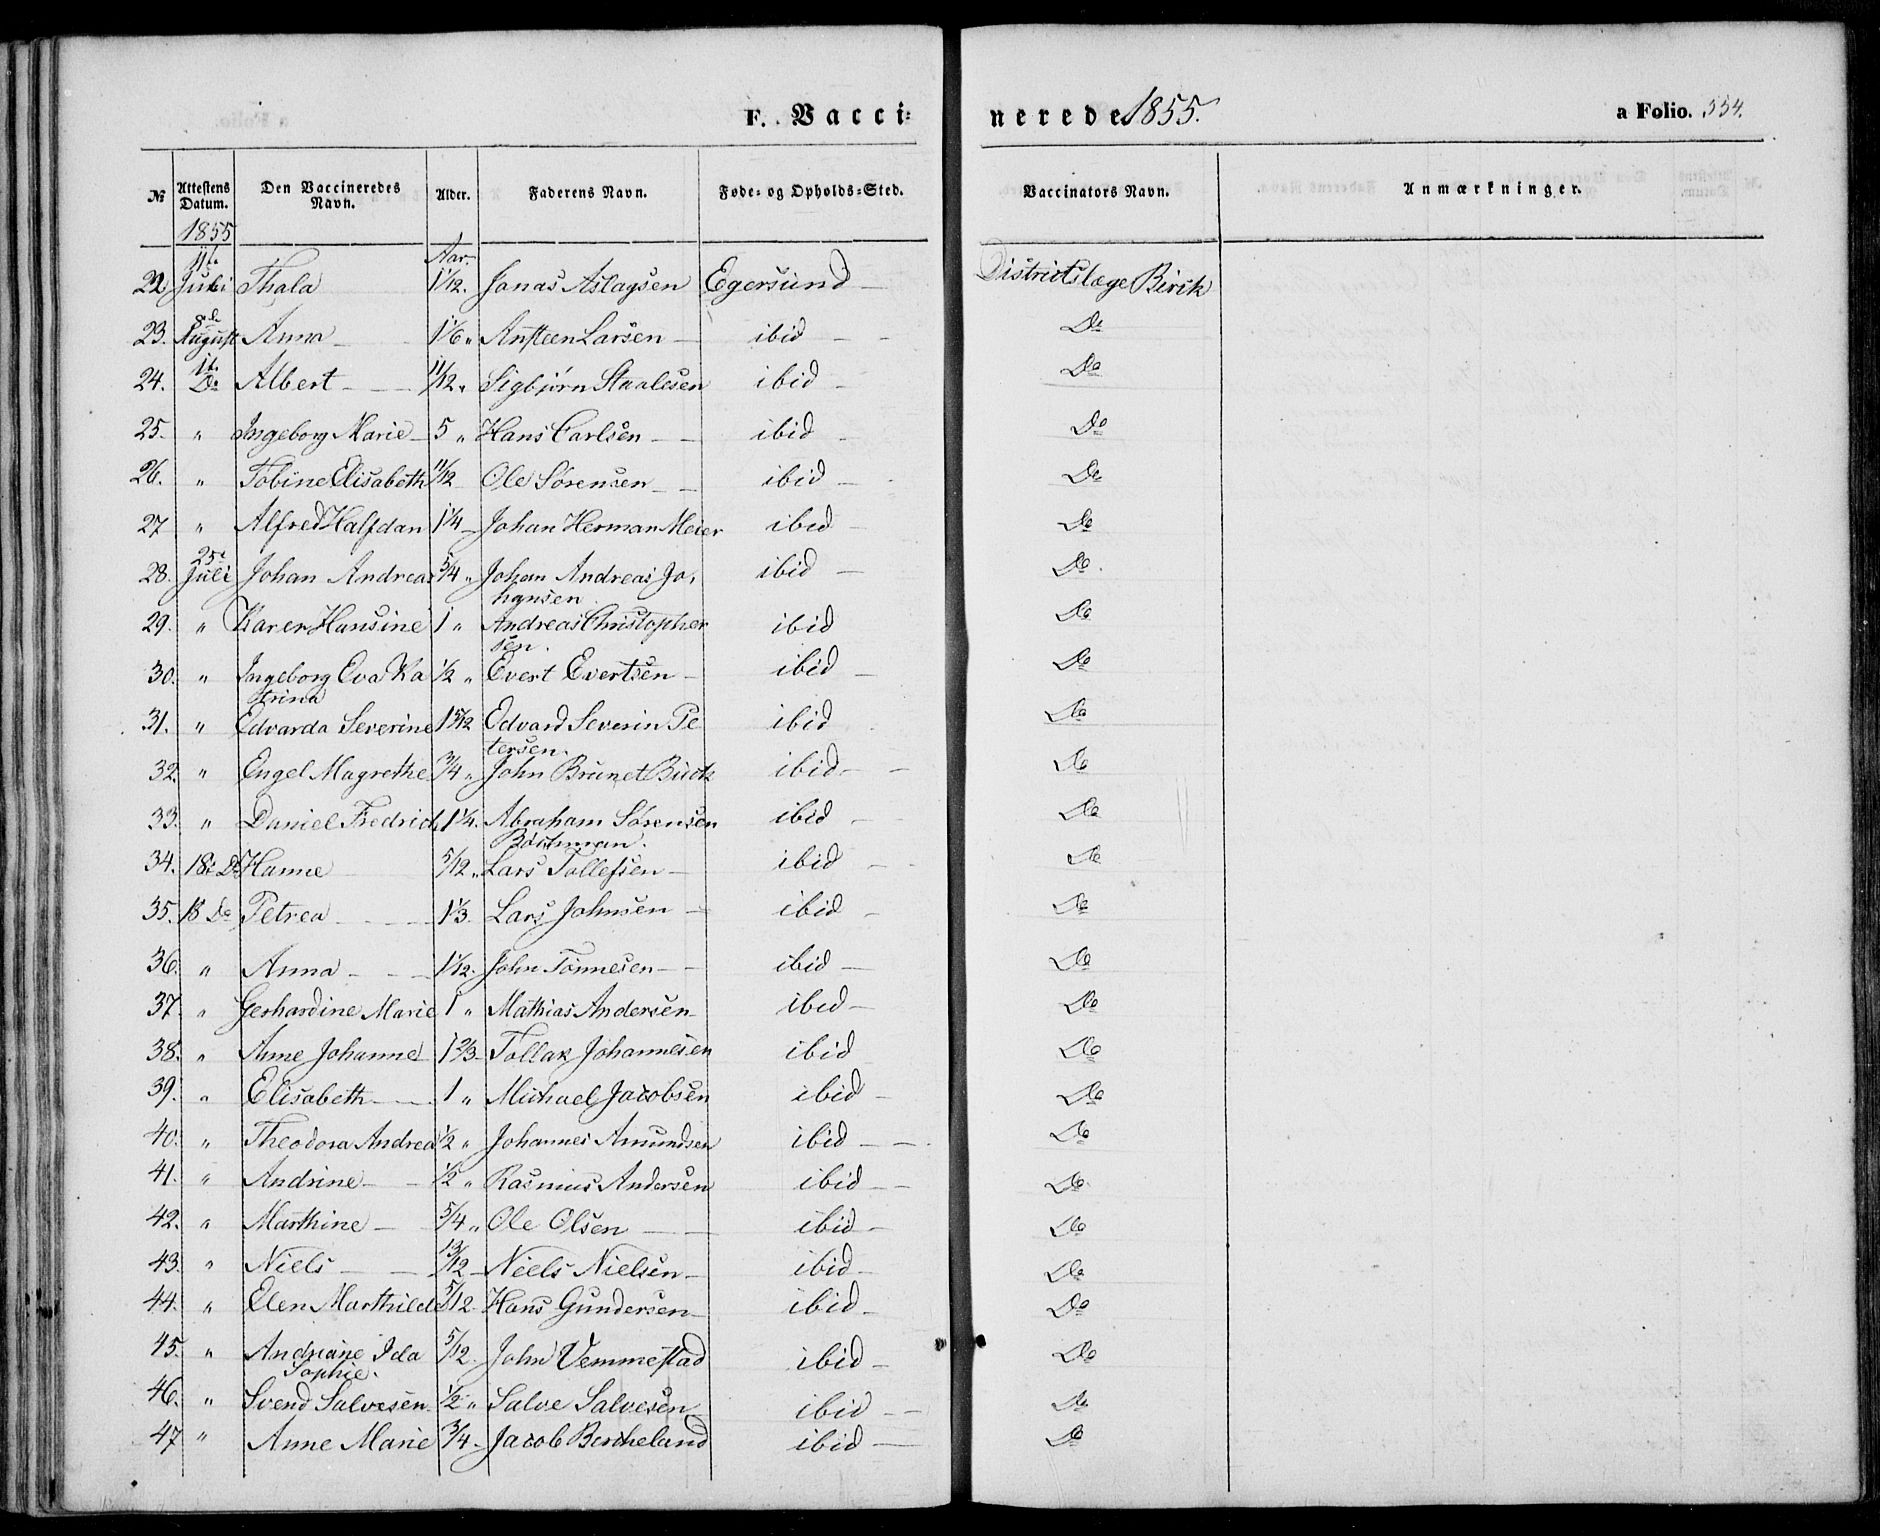 F. Vacci-
nerede 1855.
a Folio. 334.
№ Attestens Datum. Den Vaccineredes Navn. Alder. Faderens Navn. Føde- og Opholds-Sted. Vaccinators Navn. Anmærkninger.
1855
22. 11te Juli Thala Aar 1 1/12. Jonas Aslagsen Egersund — Districtslæge Birik
23. 8de August Anna — 1 1/6 „ Ansteen Larsen — ibid — — Do
24. 11te Do Albert — — 11/12 „ Sigbjørn Staalesen ibid — Do
25. „ Ingeborg Marie — 5 „ Hans Carlsen — — ibid — Do
26. „ Tobine Elisabeth 11/12 Ole Sørensen — — ibid — Do
27 „ Alfred Halfdan 1 1/4 — Johan Herman Meier ibid — Do
28. 25de Juli Johan Andreas 5/4 „ Johan Andreas Jo-
hansen. ibid — Do
29. „ Karen Hansine 1 „ Andreas Christopher
sen. ibid Do
30. „ Ingeborg Eva Ka
trina 1/2 „ Evert Evertsen — ibid — Do
31. „ Edvarda Severine 1 5/12 Edvard Severin Pe
tersen. ibid Do
32. „ Engel Magrethe 3/4 „ John Brunet Buck ibid — — Do
33. „ Daniel Fredrich 1 1/4. Abraham Sørensen
Bøckman. ibid — — Do
34. 18de Do Hanne 5/12 „ Lars Tollefsen — ibid — Do
35. 18 Do Petrea — — — 1 1/3. Lars Johnsen — ibid — Do
36. „ Anna — — — 1 1/12. John Tønnesen — — ibid — Do
37. „ Gerhardine Marie 1 „ Mathias Andersen — ibid — Do
38. „ Anne Johanne 1 2/3 — Tollak Johannesen ibid Do
39. „ Elisabeth — — 1 „ Michael Jacobsen ibid — Do
40. „ Theodora Andrea 1/2 „ Johannes Amundsen ibid — — Do
41. „ Andrine — — 1/2 „ Rasmus Andersen ibid — — Do
42. „ Marthine — 5/4 „ Ole Olsen — — ibid — Do
43. „ Niels — — 13/12 — Niels Nielsen — ibid — Do
44. „ Elen Marthilde 5/12 — Hans Gundersen — ibid — Do
45. „ Andriane Ida
Sophie. 5/12. John Vemmestad ibid — Do
46. „ Svend Salvesen 1/2 „ Salve Salvesen ibid — — Do
47 „ Anne Marie 3/4 — Jacob Bercheland ibid — Do